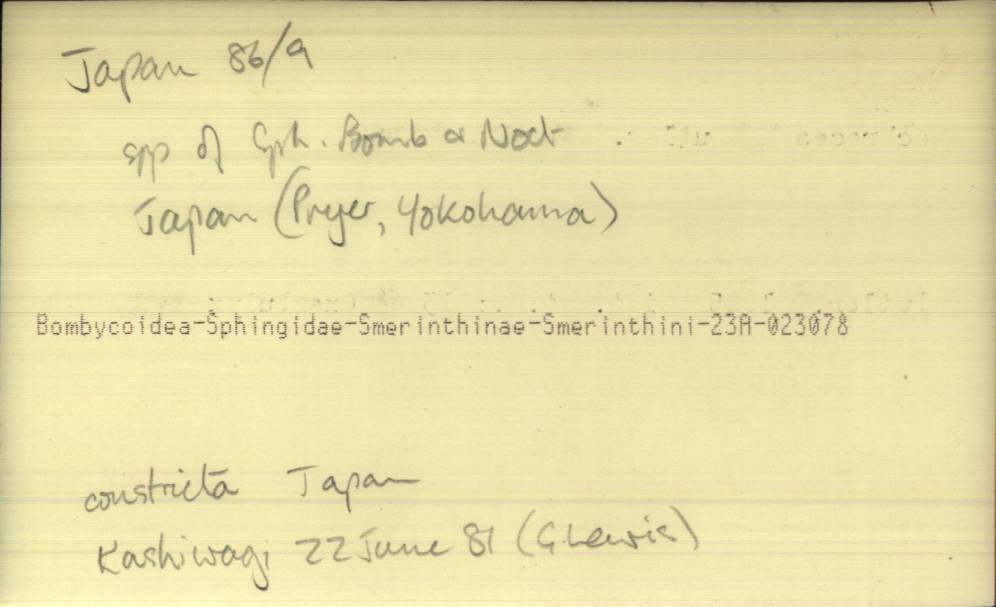 Japan 86/9
spp of Sph. Bomb & Noct
Japan (Pryer, Yokohama)
Bombycoidea-Sphingidae-Smerinthinae-Smerinthini-23A-023078
constricta Japan
Kashiwagi 22 June 81 (G Lewis)